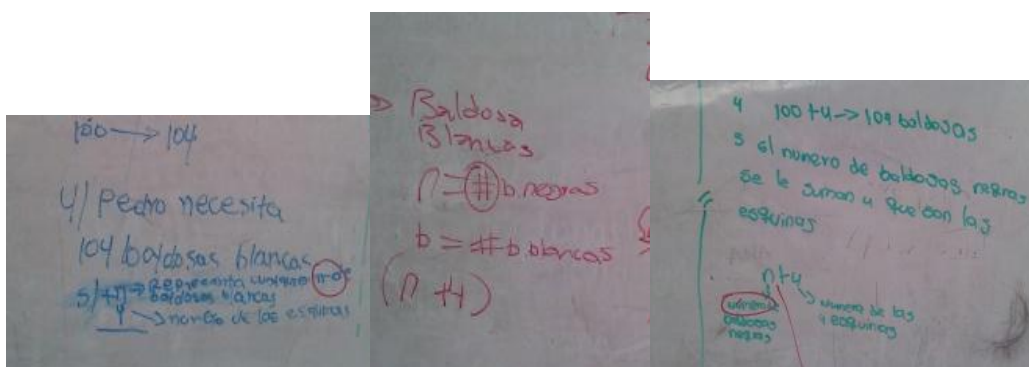 100 → 104
4/ Pedro necesita
104 baldosas blancas
5/ +n → Representa cualquier n° de
baldosas blancas
4 → numero de las esquinas
Baldosa
Blancas
n = # b. negras
b = # b. blancas
(n + 4)
4 100 + 4 -> 104 baldosas
5 al numero de baldosas negras
se le suman 4 que son las
esquinas
n + 4
numero de las
4 esquinas
baldosas
negras